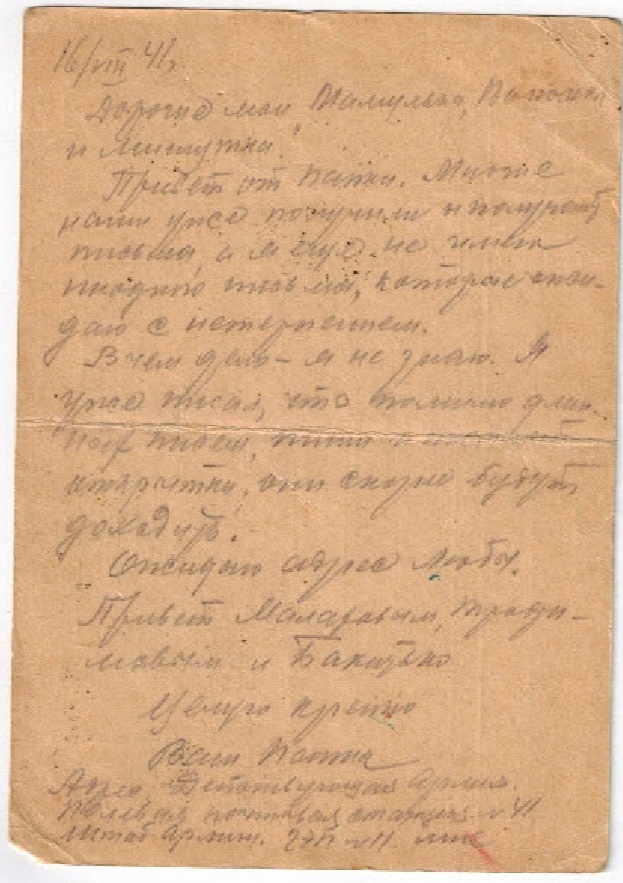 16/VIII 41 г.
Дорогие мои Мамулька,
и Мишутка!
Привет от папки. Многие
наши уже получили и получают
письма, а я еще не имею
ниодного письма, которые ожи-
даю с нетерпением.
В чем дело – я не знаю. Я
уже писал, что помимо длин-
ных писем, пиши
открытки, они скорее будут
доходить.
Ожидаю адрес Любы.
Привет Макаровым, Трофи-
мовым и
Целую крепко
Ваш Папка
Адрес Действующая армия.
Полевая почтовая станция № 41
штаб армии. № 11. мне